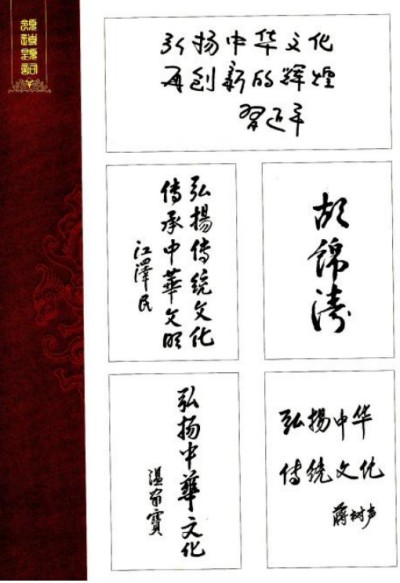 弘扬中华文化
再创新的辉煌
習近平
弘揚传统文化
传承中華文明
江澤民
胡锦涛
弘扬中華文化
温家寶
弘揚中华
传统文化
蒋树声